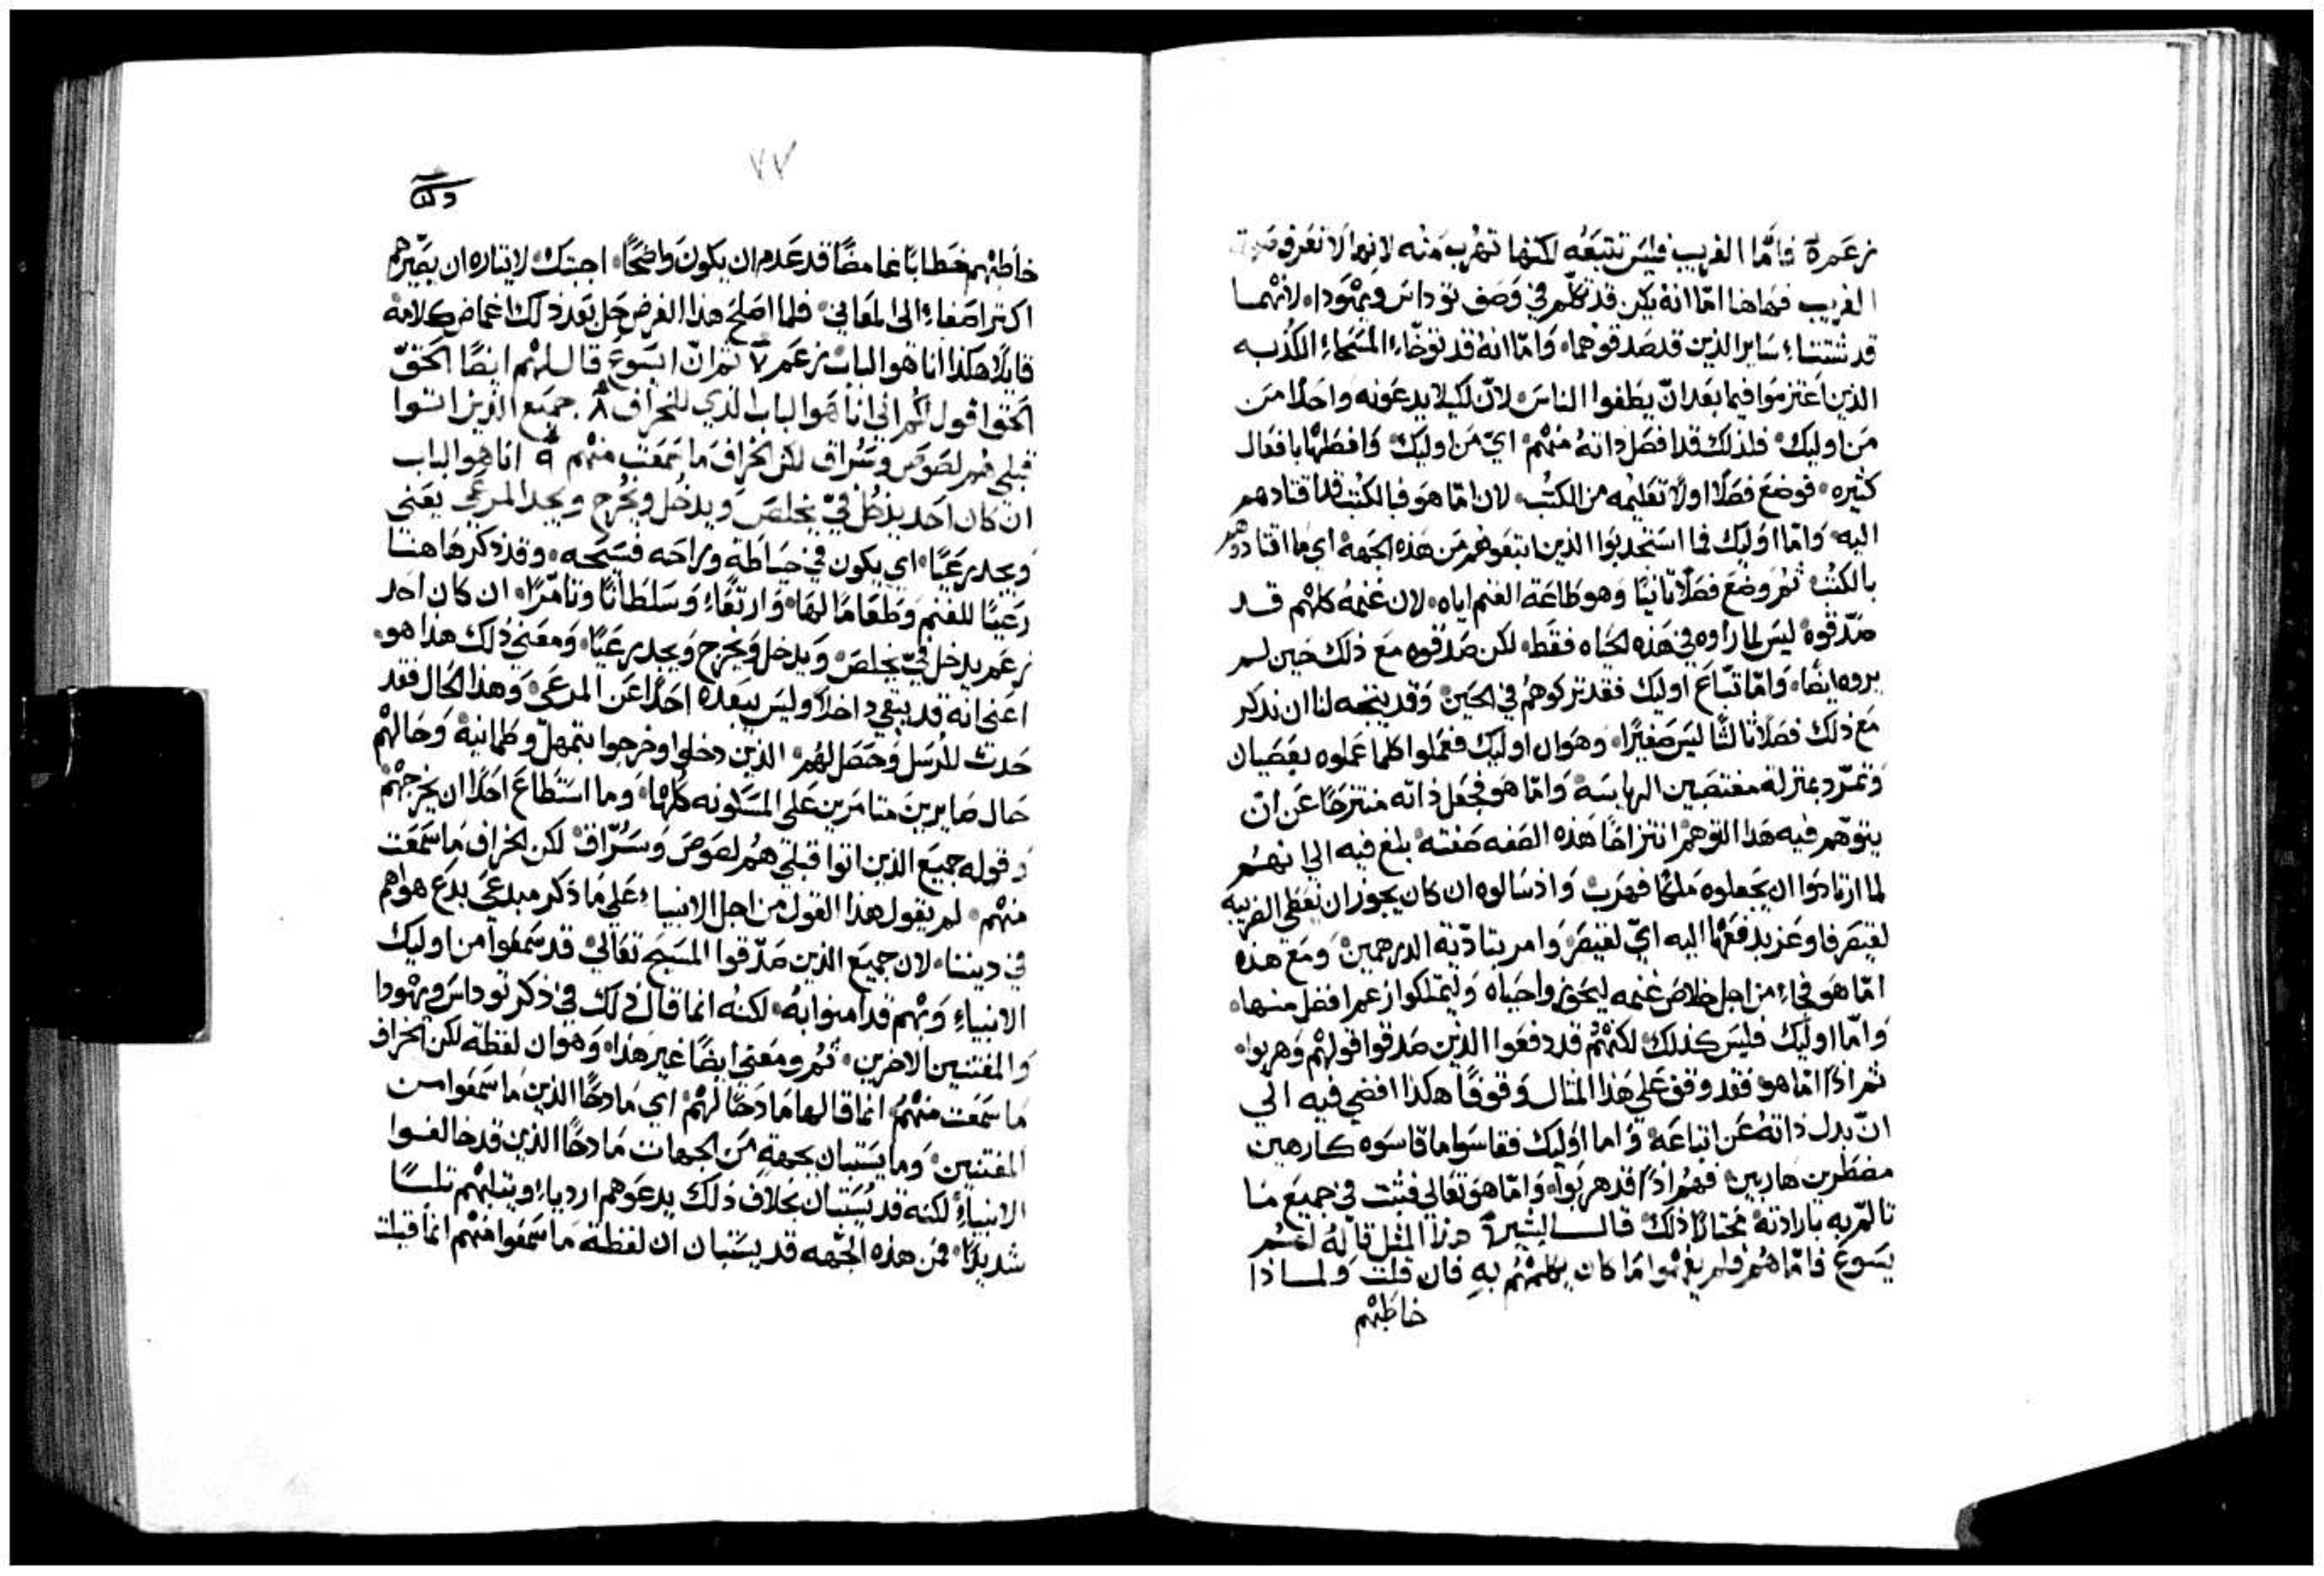 زعم ۵ فامّا الغريب فليس تتبعه لكنها تهرب منه لانها لا تعرف صوت
الغريب فهاهنا امّا انه يكن قد تكلّم في وصف توداس ويهودا، لانهما
قد شتتاء ساير الذين قد صدقوهما، وامّا انه قد توخّاء المسحاء الكذبه
الذين اعتزموا فيما بعد انّ يطغوا الناس، لانّ لكيلا يدعونه واحدًا من
من اوليك، فلذلك قد افصل ذاته منهم، اي من اوليك، وافصلها بافعال
كثيره، فوضع فصلًا اولًا تعليمه من الكتب، لان امّا هو فبالكتب قد اقتادهم
اليه، وامّا اوليك فما استجدبوا الذين اتبعوهم من هذه الجهة اي ما اقتادوهم
بالكتب، ثم وضع فصلًا ثانيًا وهو طاعة الغنم اياه، لان غنمه كلهم قد
صدّقوه ليس لما راوه في هذه الحياه فقط، لكن صدقوه مع ذلك حين لم
يروه ايضًا، وامّا تبّاع اوليك فقد تركوهم في الحين، وقد يتجه لنا ان نذكر
مع ذلك فصلًا ثالثًا ليس صغيرًا، وهو ان اوليك فعملوا كلما عملوه بعصيان
وتمرّد بمنزلة مغتصبين الرياسة، وامّا هو فجعل ذاته منتزحًا عن ان
يتوهّم فيه هذا التوهم انتزاحًا هذه الصفه صفته، بلغ فيه الي انهم
لما ارتادوا ان يجعلوه ملكًا فهرب، واذ سالوه ان كان يجوز ان نعطي الضريبه
لقيصر فاوعز بدفعها اليه اي لقيصر، وامر بتادّية الدرهمين، ومع هذه
امّا هو فجاء من اجل خلاص غنمه ليحوزوا حياه وليتملكوا زعم افضل منها،
وامّا اوليك فليس كذلك، لكنهم قد دفعوا الذين صدقوا قولهم وهربوا،
ثم اذًا امّا هو فقد وقف علي هذا المثال وقوفًا هكذا افضي فيه الي
انّ بدل ذاته عن اتباعه، واما اوليك فقاسوا ما قاسوه كارهين
مضطرين هاربين، فهم اذًا قد هربوا، وامّا هو تعالي فثبت في جميع ما
تالّم به بارادته مختارًا ذلك، قال البشير ۶ هذا المثل قاله لهم
يسوع فامّا هم فلم يفهموا ما كان يكلمهم به فان قلت ولماذا
خاطبهم
٧٧
خاطبهم خطابًا غامضًا قد عدم ان يكون واضحًا، اجبتك لايثاره ان يصيّرهم
اكثر اصغاء الى المعاني، فلما اصلح هذا الغرض حل بعد ذلك اغماض كلامه
قايلًا هكذا انا هو الباب زعم ٧ ثم انّ ايسوع قال لهم ايضًا الحقّ
الحق اقول لكم اني انا هو الباب الذي للخراف ٨ جميع الذين اتوا
قبلي هم لصوص وسراق لكن الخراف ما سمعت منهم ٩ انا هو الباب
ان كان احد يدخل فيّ يخلص ويدخل ويخرج ويجد المرعي يعني
ويجد رعيًا، اي يكون في حياطة وراحه فسيحه، وقد ذكر هاهنا
رعيًا للغنم وطعامًا لها، وارتقاء وسلطانًا وتامّرًا، ان كان احد
زعم يدخل فيّ يخلص، ويدخل ويخرج ويجد رعيًا، ومعني ذلك هذا هو،
اعني انه قد يبقي داخلًا وليس يبعده احدًا عن المرعي، وهذا الحال فقد
حدث للرسل وحصل لهم، الذين دخلوا وخرجوا بتمهلّ وطمانية، وحالهم
حال صايرين متامرين علي المسكونه كلها، وما استطاع احدًا ان يخرجهم
وقوله جميع الذين اتوا قبلي هم لصوص وسرّاق، لكن الخراف ما سمعت
منهم، لم يقول هذا القول من اجل الانبياء علي ما ذكر مبدعي بدع هواهم
في ديننا، لان جميع الذين صدّقوا المسيح تعالي، قد سمعوا من اوليك
الانبياء وبهم قد امنوا به، لكنه انما قال ذلك في ذكر توداس ويهودا
والمفتنين الاخرين، ثم ومعني ايضًا غير هذا، وهو ان لفظة لكن الخراف
ما سمعت منهم، انما قالها مادحًا لهم، اي مادحًا الذين ما سمعوا من
المفتنين، وما يستبان بجهةٍ من الجهات مادحًا الذين قد خالفوا
الانبياء لكنه قد يُستبان بخلاف ذلك يدعوهم اردياء ويثلبهم ثلبًا
شديدًا، فمن هذه الجهه قد يستبان ان لفظة ما سمعوا منهم انما قيلت